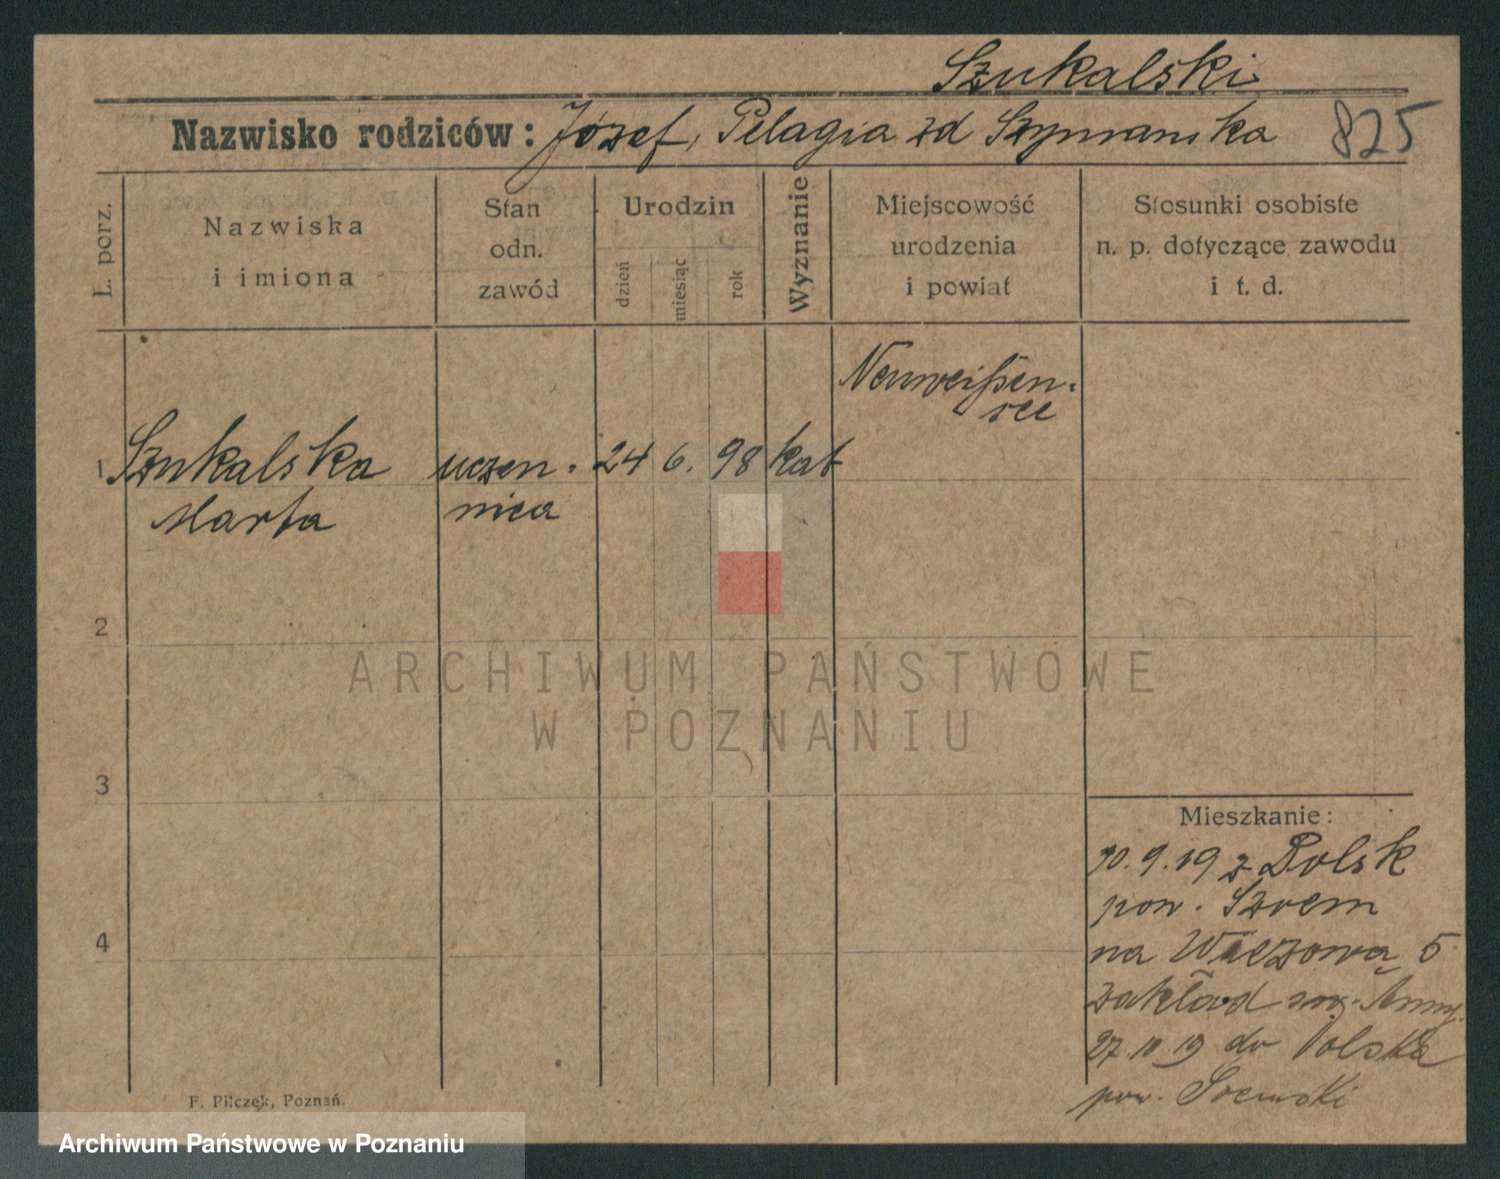 Szukalski
Nazwisko rodziców: Józef, Pelagia zd Szymanska 825
L. porz.
Nazwiska
i imiona
Stan
odn.
zawód
Urodzin
dzień
miesiąc
rok
Wyznanie
Miejscowość
urodzenia
i powiat
Stosunki osobiste
n. p. dotyczące zawodu
i t. d.
Neuweißen-
see
1 Szukalska uczen- 24 6. 98 kat
Marta nica
2
ARCHIWUM PAŃSTWOWE
W POZNANIU
3
4
Mieszkanie:
10.9.19 z Dolsk
pow. Szrem
na Wiezowa 5
zakład Anny
27.10.19 do
pow.
F. Pilczek, Poznań.
Archiwum Państwowe w Poznaniu